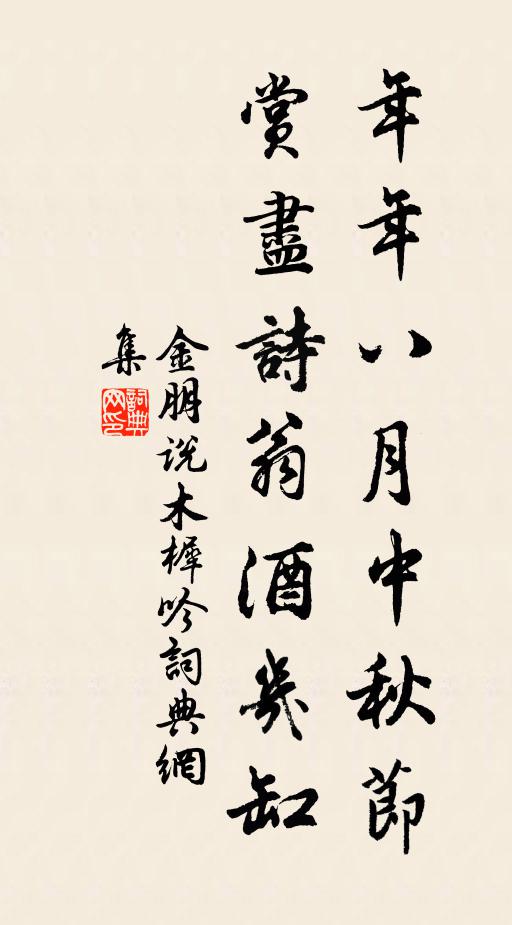 年年八月中秋節
賞盡詩翁酒幾缸
金朋说木樨吟詞典網
集
詞典
网印